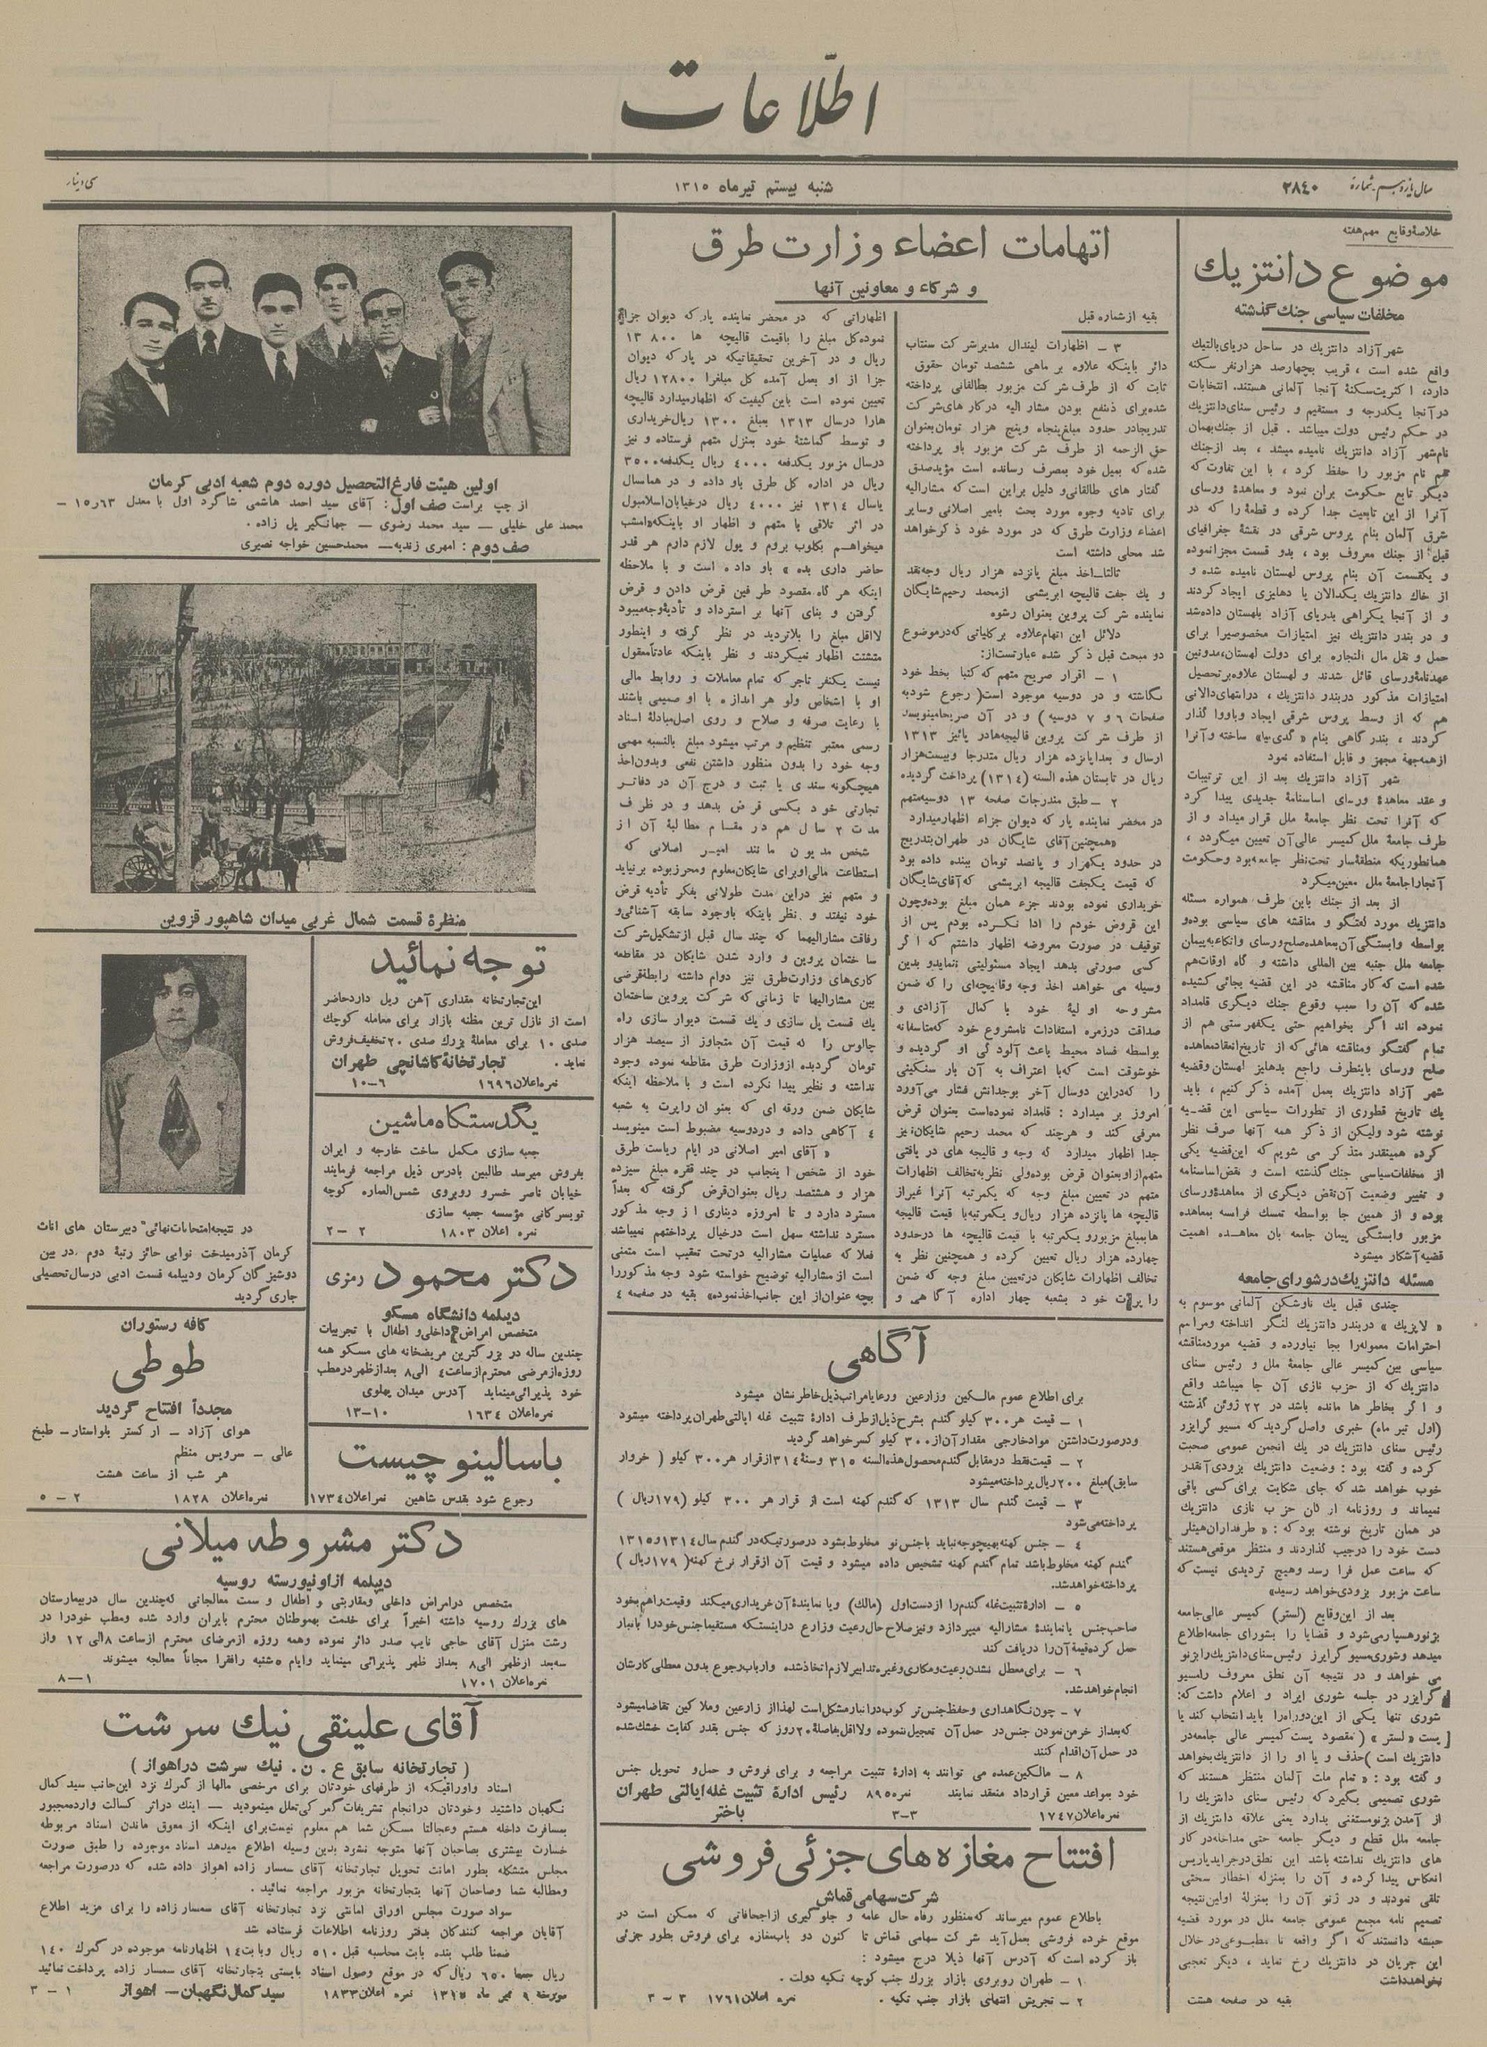 اطلاعات
سال یازدهم - شماره ۲۸۴۰
شنبه بیستم تیر ماه ۱۳۱۵
سی دینار
خلاصهٔ وقایع مهم هفته
موضوع دانتزیك
مخلفات سیاسی جنك گذشته
شهر آزاد دانتزیك در ساحل دریای بالتیك
واقع شده است ، قریب بچهارصد هزار نفر سکنه
دارد، اکثریت سکنهٔ آنجا آلمانی هستند. انتخابات
در آنجا یکدرجه و مستقیم و رئیس سنای دانتزیك
در حکم رئیس دولت میباشد . قبل از جنك بهمان
نام شهر آزاد دانتزیك نامیده میشد ، بعد از جنك
هم نام مزبور را حفظ کرد ، با این تفاوت که
دیگر تابع حکومت بران نمود و معاهدهٔ ورسای
آنرا از این تابعیت جدا کرده و قطعهٔ را که در
شرق آلمان بنام پروس شرقی در نقشهٔ جغرافیای
قبل از جنك معروف بود ، بدو قسمت مجزا نموده
و یکقسمت آن بنام پروس لهستان نامیده شده و
از خاك دانتزیك یکدالان یا دهلیزی ایجاد کردند
و از آنجا یکراهی بدریای آزاد بلهستان داده شد
و در بندر دانتزیك نیز امتیازات مخصوصیرا برای
حمل و نقل مال التجاره برای دولت لهستان، مدونین
عهدنامهٔ ورسای قائل شدند و لهستان علاوه بر تحصیل
امتیازات مذکور در بندر دانتزیك ، در انتهای دالانی
هم که از وسط پروس شرقی ایجاد و باو واگذار
کردند ، بندرگاهی بنام « گدی نیا» ساخته و آنرا
از همه جهة مجهز و قابل استفاده نمود
شهر آزاد دانتزیك بعد از این ترتیبات
و عقد معاهدهٔ ورسای اساسنامهٔ جدیدی پیدا کرد
که آنرا تحت نظر جامعهٔ ملل قرار میداد و از
طرف جامعهٔ ملل کمیسر عالی آن تعیین میگردد ،
همانطوریکه منطقهٔ سار تحت نظر جامعه بود و حکومت
آنجا را جامعهٔ ملل معین میکرد
از بعد از جنك باین طرف همواره مسئله
دانتزیك مورد گفتگو و مناقشه های سیاسی بوده و
بواسطه وابستگی آن بمعاهده صلح ورسای و اتکاء به پیمان
جامعه ملل جنبه بین المللی داشته و گاه اوقات هم
شده است که کار مناقشه در این قضیه بجائی کشیده
شده که آن را سبب وقوع جنك دیگری قلمداد
نموده اند اگر بخواهیم حتی یکفهرستی هم از
تمام گفتگو و مناقشه هائی که از تاریخ انعقاد معاهده
صلح ورسای باینطرف راجع بدهلیز لهستان و قضیه
شهر آزاد دانتزیك بعمل آمده ذکر کنیم ، باید
یك تاریخ قطوری از تطورات سیاسی این قضیه
نوشته شود ولیکن از ذکر همه آنها صرف نظر
کرده همینقدر متذکر می شویم که این قضیه یکی
از مخلفات سیاسی جنك گذشته است و نقض اساسنامه
و تغییر وضعیت آن نقض دیگری از معاهدهٔ ورسای
بوده و از همین جا بواسطه تمسك فرانسه بمعاهده
مزبور وابستگی پیمان جامعه بان معاهده اهمیت
قضیه آشکار میشود
مسئله دانتزیك در شورای جامعه
چندی قبل یك ناوشکن آلمانی موسوم به
« لایپزیك » در بندر دانتزیك لنگر انداخته و مراسم
احترامات معموله را بجا نیاورده و قضیه مورد مناقشه
سیاسی بین کمیسر عالی جامعهٔ ملل و رئیس سنای
دانتزیك که از حزب نازی آن جا میباشد واقع
و اگر بخاطر ها مانده باشد در ۲۲ ژوئن گذشته
(اول تیر ماه) خبری واصل گردید که مسیو گرایزر
رئیس سنای دانتزیك در یك انجمن عمومی صحبت
کرده و گفته بود : وضعیت دانتزیك بزودی آنقدر
خوب خواهد شد که جای شکایت برای کسی باقی
نمیماند و روزنامه ارگان حزب نازی دانتزیك
در همان تاریخ نوشته بود که : « طرفداران هیتلر
دست خود را در جیب گذاردند و منتظر موقعی هستند
که ساعت عمل فرا رسد و هیچ تردیدی نیست که
ساعت مزبور بزودی خواهد رسید»
بعد از این وقایع (لستر) کمیسر عالی جامعه
بژنو رهسپار می شود و قضایا را بشورای جامعه اطلاع
میدهد و شوری مسیو گرایزر رئیس سنای دانتزیك را بژنو
می خواهد و در نتیجه آن نطق معروف را مسیو
گرایزر در جلسه شوری ایراد و اعلام داشت که:
شوری تنها یکی از این دو راه را باید انتخاب کند یا
پست « لستر » ( مقصود پست کمیسر عالی جامعه در
دانتزیك است ) حذف و یا او را از دانتزیك بخواهد
و گفته بود : « تمام ملت آلمان منتظر هستند که
شوری تصمیمی بگیرد که رئیس سنای دانتزیك را
از آمدن بژنو مستغنی بدارد یعنی علاقه دانتزیك از
جامعه ملل قطع و دیگر جامعه حتی مداخله در کار
های دانتزیك نداشته باشد این نطق در جراید پاریس
انعکاس پیدا کرده و آن را بمنزله اخطار سختی
تلقی نمودند و در ژنو آن را بمنزلهٔ اولین نتیجه
تصمیم نامه مجمع عمومی جامعه ملل در مورد قضیه
حبشه دانستند که اگر واقعه نا مطبوعی در خلال
این جریان در دانتزیك رخ نماید ، دیگر تعجبی
نخواهد داشت
بقیه در صفحه هشت
اتهامات اعضاء وزارت طرق
و شرکاء و معاونین آنها
بقیه از شماره قبل
۳ - اظهارات لیندال مدیر شرکت سنتاب
دائر باینکه علاوه بر ماهی ششصد تومان حقوق
ثابت که از طرف شرکت مزبور بطالقانی پرداخته
شده برای ذینفع بودن مشار الیه در کار های شرکت
تدریجا در حدود مبلغ پنجاه و پنج هزار تومان بعنوان
حق الزحمه از طرف شرکت مزبور باو پرداخته
شده که بمیل خود بمصرف رسانده است مؤید صدق
گفتار های طالقانی و دلیل براین است که مشارالیه
برای تادیه وجوه مورد بحث بامیر اصلانی و سایر
اعضاء وزارت طرق که در مورد خود ذکر خواهد
شد محلی داشته است
ثالثا - اخذ مبلغ پانزده هزار ریال وجه نقد
و یك جفت قالیچه ابریشمی از محمد رحیم شایگان
نماینده شرکت پروین بعنوان رشوه
دلائل این اتهام علاوه بر کلیاتی که در موضوع
دو مبحث قبل ذکر شده عبارتست از:
۱ - اقرار صریح متهم که کتبا بخط خود
نگاشته و در دوسیه موجود است ( رجوع شود به
صفحات ۶ و ۷ دوسیه ) و در آن صریحا مینویسد
از طرف شرکت پروین قالیچه ها در پائیز ۱۳۱۳
ارسال و بعدا پانزده هزار ریال متدرجا و بیست هزار
ریال در تابستان هذه السنه (۱۳۱۴) پرداخت گردیده
۲ - طبق مندرجات صفحه ۱۳ دوسیه متهم
در محضر نماینده پارکه دیوان جزاء اظهار میدارد
«همچنین آقای شایگان در طهران بتدریج
در حدود یکهزار و پانصد تومان ببنده داده بود
که قیمت یکجفت قالیچه ابریشمی که آقای شایگان
خریداری نموده بودند جزء همان مبلغ بوده و چون
این قروض خودم را ادا نکرده بودم پس از
توقیف در صورت معروضه اظهار داشتم که اگر
کسی صورتی بدهد ایجاد مسئولیتی نماید و بدین
وسیله می خواهد اخذ وجه و قالیچه ای را که ضمن
مشروحه اولیهٔ خود با کمال آزادی و
صداقت در زمره استفادات نامشروع خود که متاسفانه
بواسطه فساد محیط باعث آلودگی او گردیده و
خوشوقت است که با اعتراف به آن بار سنگینی
را که در این دو سال آخر بوجدانش فشار می آورد
امروز بر میدارد : قلمداد نموده است بعنوان قرض
معرفی کند و هرچند که محمد رحیم شایگان نیز
جدا اظهار میدارد که وجه و قالیچه های دریافتی
متهم از او بعنوان قرض بوده ولی نظر به تخالف اظهارات
متهم در تعیین مبلغ وجه که یکمرتبه آنرا غیر از
قالیچه ها پانزده هزار ریال و یکمرتبه با قیمت قالیچه
ها بمبلغ مزبور و یکمرتبه با قیمت قالیچه ها در حدود
چهارده هزار ریال تعیین کرده و همچنین نظر به
تخالف اظهارات شایگان در تعیین مبلغ وجه که ضمن
راپرت خود بشعبه چهار اداره آگاهی و
اظهاراتی که در محضر نماینده پارکه دیوان جزا
نموده کل مبلغ را باقیمت قالیچه ها ۱۳۸۰۰
ریال و در آخرین تحقیقاتیکه در پارکه دیوان
جزا از او بعمل آمده کل مبلغرا ۱۲۸۰۰ ریال
تعیین نموده است باین کیفیت که اظهار میدارد قالیچه
هارا در سال ۱۳۱۳ بمبلغ ۱۳۰۰ ریال خریداری
و توسط گماشتهٔ خود بمنزل متهم فرستاده و نیز
در سال مزبور یکدفعه ۴۰۰۰ ریال یکدفعه ۳۵۰۰
ریال در اداره کل طرق باو داده و در همانسال
یا سال ۱۳۱۴ نیز ۴۰۰۰ ریال در خیابان اسلامبول
در اثر تلاقی با متهم و اظهار او باینکه «امشب
میخواهم بکلوب بروم و پول لازم دارم هر قدر
حاضر داری بده » باو داده است و با ملاحظه
اینکه هر گاه مقصود طرفین قرض دادن و قرض
گرفتن و بنای آنها بر استرداد و تأدیهٔ وجه میبود
لااقل مبلغ را بلاتردید در نظر گرفته و اینطور
متشتت اظهار نمیکردند و نظر باینکه عادتاً معقول
نیست یکنفر تاجر که تمام معاملات و روابط مالی
او با اشخاص ولو هر اندازه با او صمیمی باشند
با رعایت صرفه و صلاح و روی اصل مبادلهٔ اسناد
رسمی معتبر تنظیم و مرتب میشود مبلغ بالنسبه مهمی
وجه خود را بدون منظور داشتن نفعی و بدون اخذ
هیچگونه سندی یا ثبت و درج آن در دفاتر
تجارتی خود بکسی قرض بدهد و در ظرف
مدت ۲ سال هم در مقام مطالبهٔ آن از
شخص مدیون مانند امیر اصلانی که
استطاعت مالی او برای شایگان معلوم و محرز بوده برنیاید
و متهم نیز در این مدت طولانی بفکر تأدیه قرض
خود نیفتد و نظر باینکه باوجود سابقه آشنائی و
رفاقت مشارالیهما که چند سال قبل از تشکیل شرکت
ساختمان پروین و وارد شدن شایگان در مقاطعه
کاری های وزارت طرق نیز دوام داشته رابطهٔ قرضی
بین مشارالیها تا زمانی که شرکت پروین ساختمان
یك قسمت پل سازی و یك قسمت دیوار سازی راه
چالوس را که قیمت آن متجاوز از سیصد هزار
تومان گردیده از وزارت طرق مقاطعه نموده وجود
نداشته و نظیر پیدا نکرده است و با ملاحظه اینکه
شایگان ضمن ورقه ای که بعنوان راپرت به شعبه
۴ آگاهی داده و در دوسیه مضبوط است مینویسد
« آقای امیر اصلانی در ایام ریاست طرق
خود از شخص اینجانب در چند فقره مبلغ سیزده
هزار و هشتصد ریال بعنوان قرض گرفته که بعداً
مسترد دارد و تا امروزه دیناری از وجه مذکور
مسترد نداشته سهل است در خیال پرداختهم نمیباشد
فعلا که عملیات مشارالیه در تحت تعقیب است متمنی
است از مشارالیه توضیح خواسته شود وجه مذکور را
بچه عنوان از این جانب اخذ نموده» بقیه در صفحه ۴
آگاهی
برای اطلاع عموم مالکین وزارعین ورعایا مراتب ذیل خاطر نشان میشود
۱ - قیمت هر ۳۰۰ کیلو گندم بشرح ذیل از طرف ادارهٔ تثبیت غله ایالتی طهران پرداخته میشود
و در صورت داشتن مواد خارجی مقدار آن از ۳۰۰ کیلو کسر خواهد گردید
۲ - قیمت فقط در مقابل گندم محصول هذه السنه ۳۱۵ وسنهٔ ۳۱۴ از قرار هر ۳۰۰ کیلو ( خروار
سابق) مبلغ ۲۰۰ ریال پرداخته میشود
۳ - قیمت گندم سال ۱۳۱۳ که گندم کهنه است از قرار هر ۳۰۰ کیلو (۱۷۹ ریال )
پرداخته می شود
۴ - جنس کهنه بهیچوجه نباید باجنس نو مخلوط بشود در صورتیکه در گندم سال ۱۳۱۴ و ۱۳۱۵
گندم کهنه مخلوط باشد تمام گندم کهنه تشخیص داده میشود و قیمت آن از قرار نرخ کهنه ( ۱۷۹ ریال )
پرداخته خواهد شد.
۵ - ادارهٔ تثبیت غله گندم را از دست اول (مالك) ویا نمایندهٔ آن خریداری میکند وقیمت راهم بخود
صاحب جنس یا نمایندهٔ مشارالیه میپردازد و نیز صلاح حال رعیت وزارع در اینستکه مستقیما جنس خود را بانبار
حمل کرده قیمهٔ آن را دریافت کند
۶ - برای معطل نشدن رعیت ومکاری وغیره تدابیر لازم اتخاذ شده وارباب رجوع بدون معطلی کارشان
انجام خواهد شد.
۷ - چون نگاهداری و حفظ جنس تر کوب در انبار مشکل است لهذا از زارعین وملاکین تقاضا میشود
که بعد از خرمن نمودن جنس در حمل آن تعجیل ننموده ولااقل بفاصلهٔ ۲۰ روز که جنس بقدر کفایت خشك شده
در حمل آن اقدام کنند
۸ - مالکین عمده می توانند به ادارهٔ تثبیت مراجعه و برای فروش و حمل و تحویل جنس
خود بمواعد معین قرارداد منعقد نمایند نمره ۸۹۵ رئیس ادارهٔ تثبیت غله ایالتی طهران
نمره اعلان ۱۷۴۷ ۳-۳ باختر
افتتاح مغازه های جزئی فروشی
شرکت سهامی قماش
باطلاع عموم میرساند که منظور رفاه حال عامه و جلو گیری از اجحافاتی که ممکن است در
موقع خرده فروشی بعمل آید شرکت سهامی قماش تا کنون دو باب مغازه برای فروش بطور جزئی
باز کرده است که آدرس آنها ذیلا درج میشود :
۱ - طهران روبروی بازار بزرك جنب کوچه تکیه دولت .
۲ - تجریش انتهای بازار جنب تکیه . نمره اعلان ۱۷۶۱ ۳ - ۳
اولین هیئت فارغ التحصیل دوره دوم شعبه ادبی کرمان
از چپ براست صف اول: آقای سید احمد هاشمی شاگرد اول با معدل ۱۵٫۶۳ -
محمد علی خلیلی - سید محمد رضوی - جهانگیر یل زاده .
صف دوم : امهری زندیه - محمدحسین خواجه نصیری
منظرهٔ قسمت شمال غربی میدان شاهپور قزوین
توجه نمائید
این تجارتخانه مقداری آهن ریل دارد حاضر
است از نازل ترین مظنه بازار برای معامله کوچك
صدی ۱۰ برای معاملهٔ بزرك صدی ۲۰ تخفیف فروش
نماید . تجارتخانهٔ کاشانچی طهران
نمره اعلان ۱۶۹۶ ۶-۱۰
یکدستکاه ماشین
جعبه سازی مکمل ساخت خارجه و ایران
بفروش میرسد طالبین بادرس ذیل مراجعه فرمایند
خیابان ناصر خسرو روبروی شمس العماره کوچه
تویسرکانی مؤسسه جعبه سازی
نمره اعلان ۱۸۰۳ ۲ - ۲
دکتر محمود رمزی
دیپلمه دانشگاه مسکو
متخصص امراض داخلی و اطفال با تجربیات
چندین ساله در بزرگترین مریضخانه های مسکو همه
روزه از مرضی محترم از ساعت ۴ الی ۸ بعد از ظهر در مطب
خود پذیرائی مینماید آدرس میدان پهلوی
نمره اعلان ۱۶۳۴ ۱۰-۱۳
باسالینو چیست
رجوع شود بقدس شاهین نمره اعلان ۱۷۳۴
در نتیجه امتحانات نهائی دبیرستان های اناث
کرمان آذرمیدخت نوابی حائز رتبهٔ دوم در بین
دوشیزگان کرمان و دیپلمه قسمت ادبی در سال تحصیلی
جاری گردید
کافه رستوران
طوطی
مجدداً افتتاح گردید
هوای آزاد - ارکستر بلواستار - طبخ
عالی - سرویس منظم
هر شب از ساعت هشت
نمره اعلان ۱۸۲۸ ۲ - ۵
دکتر مشروطه میلانی
دیپلمه از اونیورسته روسیه
متخصص در امراض داخلی و مقاربتی و اطفال و سمت معالجاتی که چندین سال در بیمارستان
های بزرك روسیه داشته اخیراً برای خدمت بهموطنان محترم بایران وارد شده ومطب خود را در
رشت منزل آقای حاجی نایب صدر دائر نموده وهمه روزه از مرضای محترم از ساعت ۸ الی ۱۲ واز
سه بعد از ظهر الی ۸ بعد از ظهر پذیرائی مینماید وایام ۵ شنبه را فقرا مجاناً معالجه میشوند
نمره اعلان ۱۷۰۱ ۱-۸
آقای علینقی نیك سرشت
( تجارتخانه سابق ع . ن . نیك سرشت در اهواز )
اسناد و اوراقیکه از طرفهای خودتان برای مرخصی مالها از گمرك نزد این جانب سید کمال
نگهبان داشتید وخودتان در انجام تشریفات گمرکی تعلل مینمودید - اینك در اثر کسالت وارده مجبور
بمسافرت داخله هستم وعجالتا مسکن شما هم معلوم نیست برای اینکه از معوق ماندن اسناد مربوطه
خسارت بیشتری بصاحبان آنها متوجه نشود بدین وسیله اطلاع میدهد اسناد موجوده را طبق صورت
مجلس متشکله بطور امانت تحویل تجارتخانه آقای سمسار زاده اهواز داده شده که درصورت مراجعه
ومطالبه شما وصاحبان آنها بتجارتخانه مزبور مراجعه نمائید .
سواد صورت مجلس اوراق امانتی نزد تجارتخانه آقای سمسار زاده را برای مزید اطلاع
آقایان مراجعه کنندگان بدفتر روزنامه اطلاعات فرستاده شد
ضمنا طلب بنده بابت محاسبه قبل ۵۱۰ ریال وبابت ۱۴ اظهارنامه موجوده در گمرك ۱۴۰
ریال جمعا ۶۵۰ ریال که در موقع وصول اسناد بایستی بتجارتخانه آقای سمسار زاده پرداخت نمائید
مورخهٔ ۹ تیر ماه ۱۳۱۵ نمره اعلان ۱۸۳۳ سید کمال نگهبان - اهواز ۱ - ۳